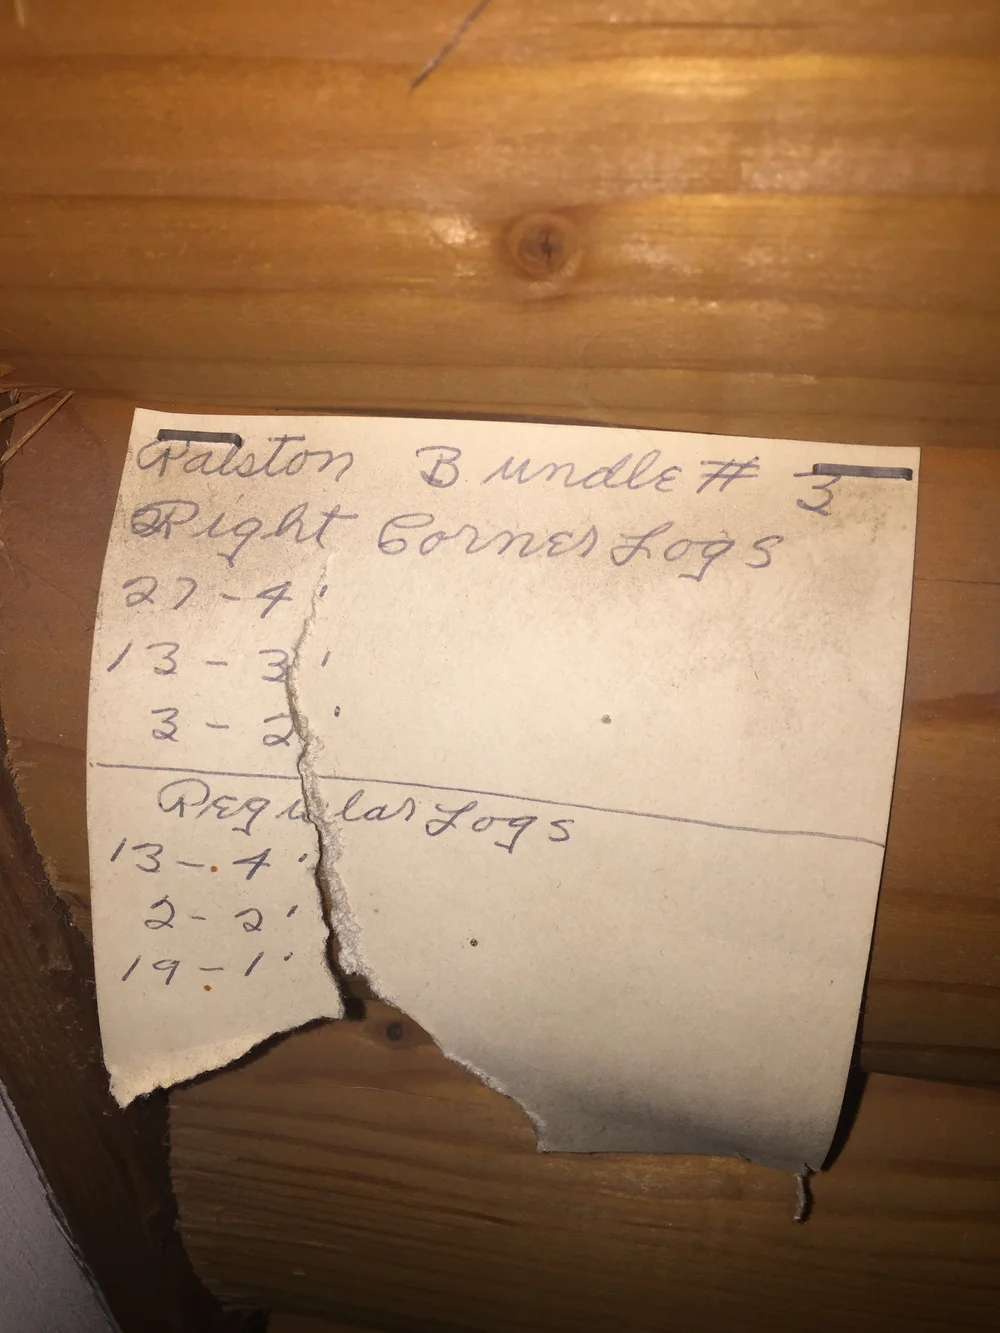 Ralston Bundle # 3
Right Corner Logs
27 - 4'
13 - 3'
3 - 2'
Regular Logs
13 - 4'
2 - 2'
19 - 1'